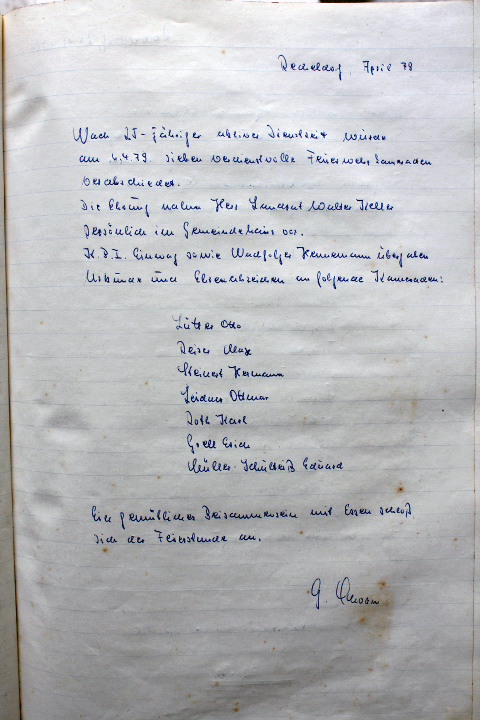 April 79
Nach 25-jähriger aktiver Dienstzeit wurden
am 6.4.79 sieben verdienstvolle Feuerwehrkameraden
verabschiedet.
Die Ehrung nahm Herr Landrat Walter Keller
persönlich im Gemeindehaus vor.
K.B.I. Einwag sowie Nachfolger Hennemann übergaben
Urkunde und Ehrenabzeichen an folgende Kameraden:
Otto
Max
Steinert Hermann
Leidner Ottmar
Roth Karl
Groll Erich
Müller-Schultheiß Eduard
Ein gemütliches Beisammensein mit Essen schloß
sich der Feierstunde an.
G.